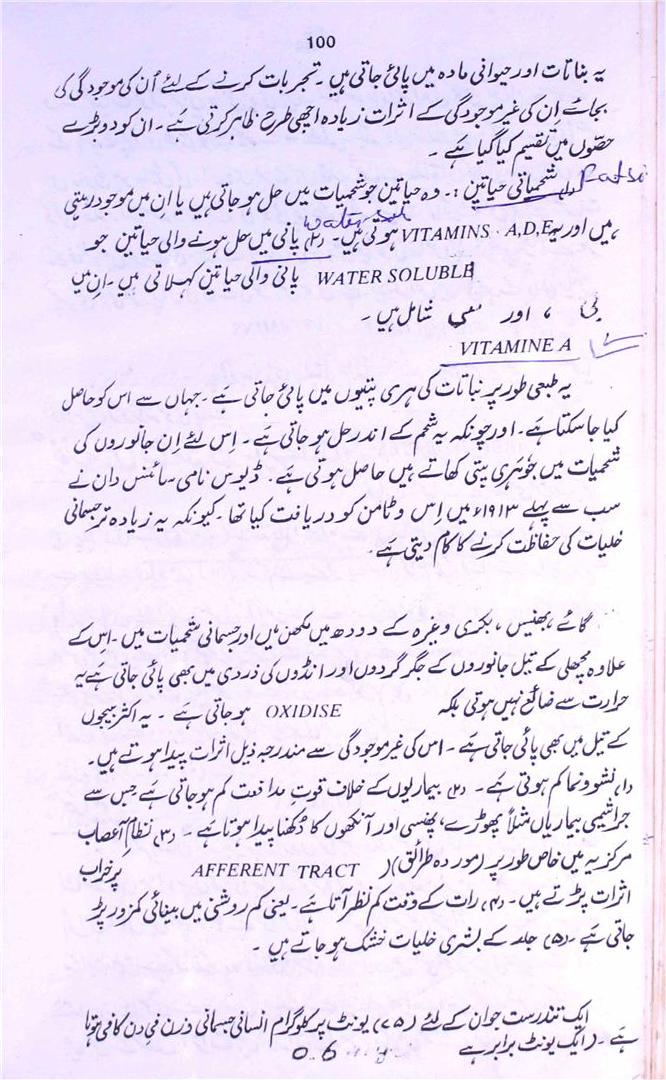 100
یہ بناتات اور حیوانی مادہ میں پائی جاتی ہیں ۔ تجربات کرنے کے لئے اُن کی موجودگی کی
بجائے اِن کی غیر موجودگی کے اثرات زیادہ اچھی طرح ظاہر کرتی ہے ۔ ان کو دو بڑے
حصّوں میں تقسیم کیا گیا ہے
(۱) شحمیاتی حیاتین :۔ وہ حیاتین جو شحمیات میں حل ہو جاتی ہیں یا ان میں موجود رہتی Fats
ہیں اور یہ VITAMINS A,D,E ہوتی ہیں ۔ (۲) پانی میں حل ہونے والی حیاتین جو water sol
WATER SOLUBLE پانی والی حیاتین کہلاتی ہیں ۔ اِن میں
بی ، اور سی شامل ہیں ۔
VITAMINE A
یہ طبعی طور پر نباتات کی ہری پتیوں میں پائی جاتی ہے ۔ جہاں سے اس کو حاصل
کیا جا سکتا ہے ۔ اور چونکہ یہ شحم کے اندر حل ہو جاتی ہے ۔ اِس لئے اِن جانوروں کی
شحمیات میں جو ہری پتی کھاتے ہیں حاصل ہوتی ہے ۔ ڈیوس نامی سائنس دان نے
سب سے پہلے ۱۹۱۳ء میں اِس وٹامن کو دریافت کیا تھا ۔ کیونکہ یہ زیادہ تر جسمانی
خلیات کی حفاظت کرنے کا کام دیتی ہے ۔
گائے ، بھنیس ، بکری وغیرہ کے دودھ میں مکھن میں اور جسمانی شحمیات میں ۔ اس کے
علاوہ مچھلی کے تیل جانوروں کے جگر گردوں اور انڈوں کی زردی میں بھی پائی جاتی ہے یہ
حرارت سے ضائع نہیں ہوتی بلکہ OXIDISE ہو جاتی ہے ۔ یہ اکثر بیجوں
کے تیل میں بھی پائی جاتی ہے ۔ اس کی غیر موجودگی سے مندرجہ ذیل اثرات پیدا ہوتے ہیں ۔
(۱) نشوونما کم ہوتی ہے ۔ (۲) بیماریوں کے خلاف قوتِ مدافعت کم ہو جاتی ہے جس سے
جراثیمی بیماریاں مثلاً پھوڑے ، پھنسی اور آنکھوں کا دُکھنا پیدا ہوتا ہے ۔ (۳) نظامِ اعصاب
مرکزیہ میں خاص طور پر (موردہ طرائق) ( AFFERENT TRACT پر خراب
اثرات پڑتے ہیں ۔ (۴) رات کے وقت کم نظر آتا ہے ۔ یعنی کم روشنی میں بینائی کمزور پڑ
جاتی ہے ۔ (۵) جلد کے بشری خلیات خشک ہو جاتے ہیں ۔
ایک تندرست جوان کے لئے (۷۵) یونٹ پر کلوگرام انسانی جسمانی وزن فی دن کافی ہوتا
ہے ۔ ( ایک یونٹ برابر ہے 0.6